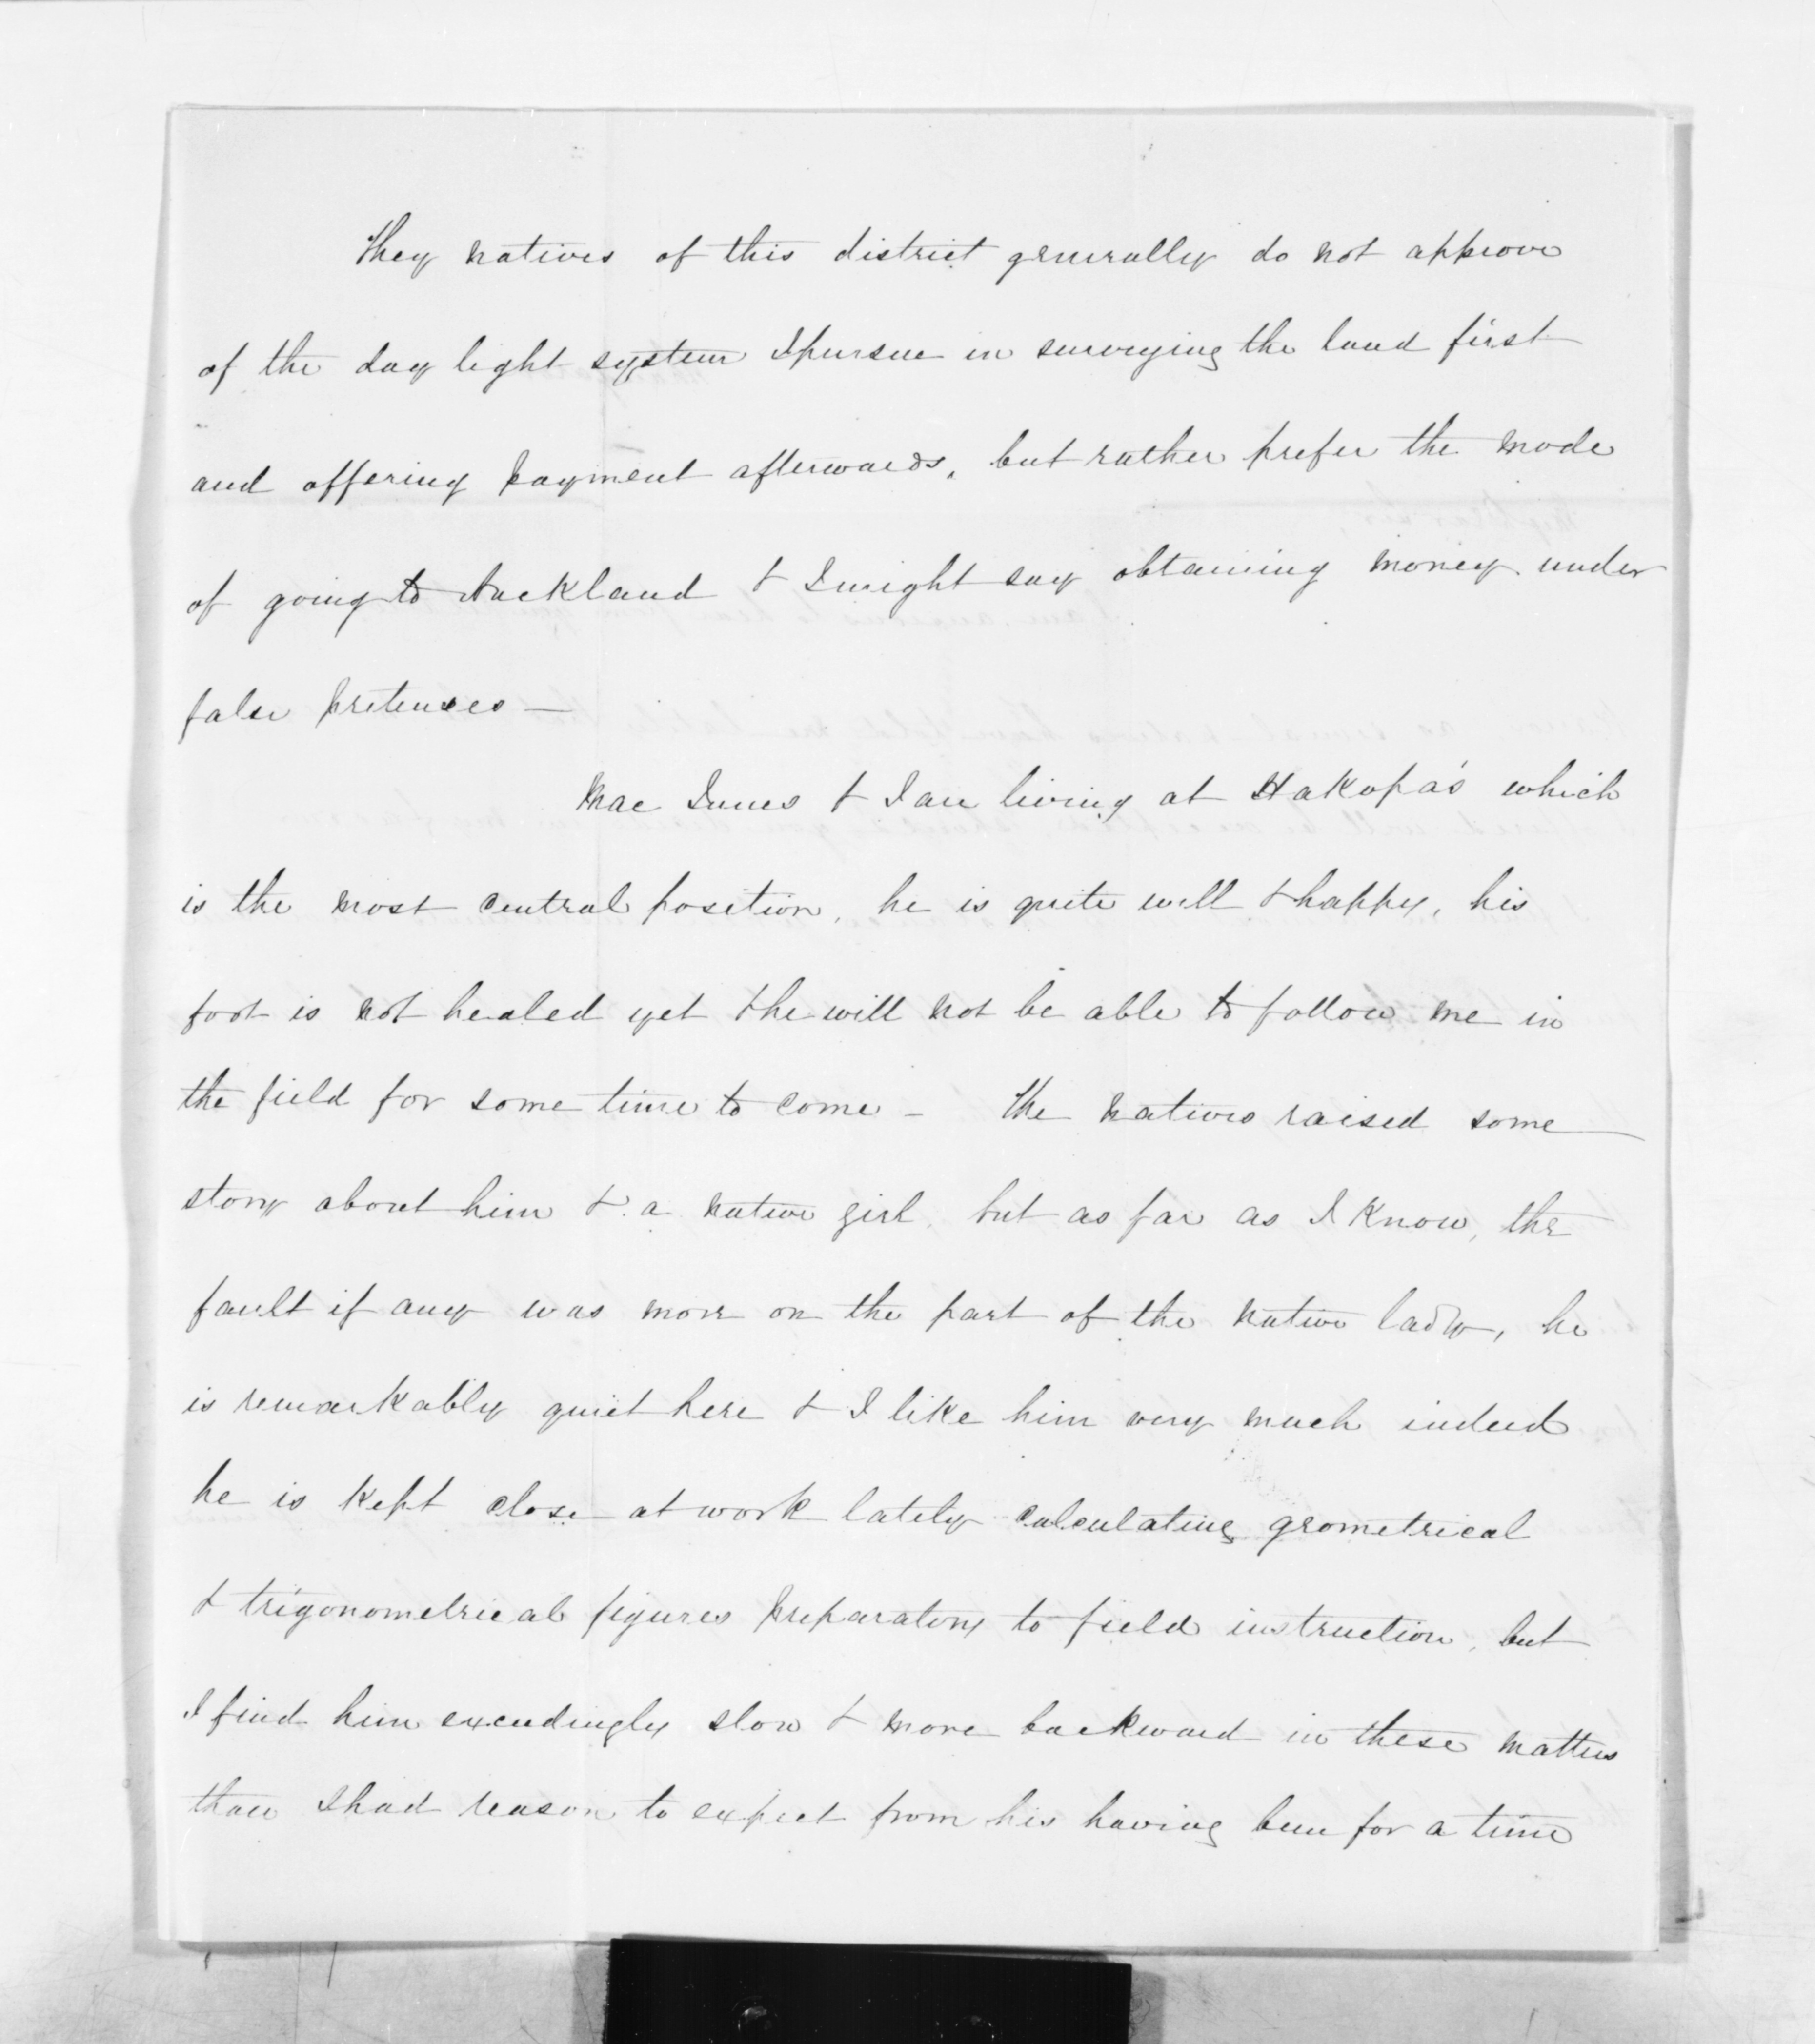 They natives of this district generally do not approve
of the day light system I pursue in surveying the land first
and offering payment afterwards, but rather prefer the mode
of going to Auckland & I might say obtaining money under
false pretenses —
Mac Innes & I are living at Hakopa's which
is the most central position, he is quite well & happy, his
foot is not healed yet & he will not be able to follow me in
the field for some time to come — The natives raised some
story about him & a native girl, but as far as I know, the
fault if any was more on the part of the native lady, he
is remarkably quiet here & I like him very much indeed
he is kept close at work lately calculating geometrical
& trigonometrical figures preparatory to field instruction, but
I find him exceedingly slow & more backward in these matters
than I had reason to expect from his having been for a time